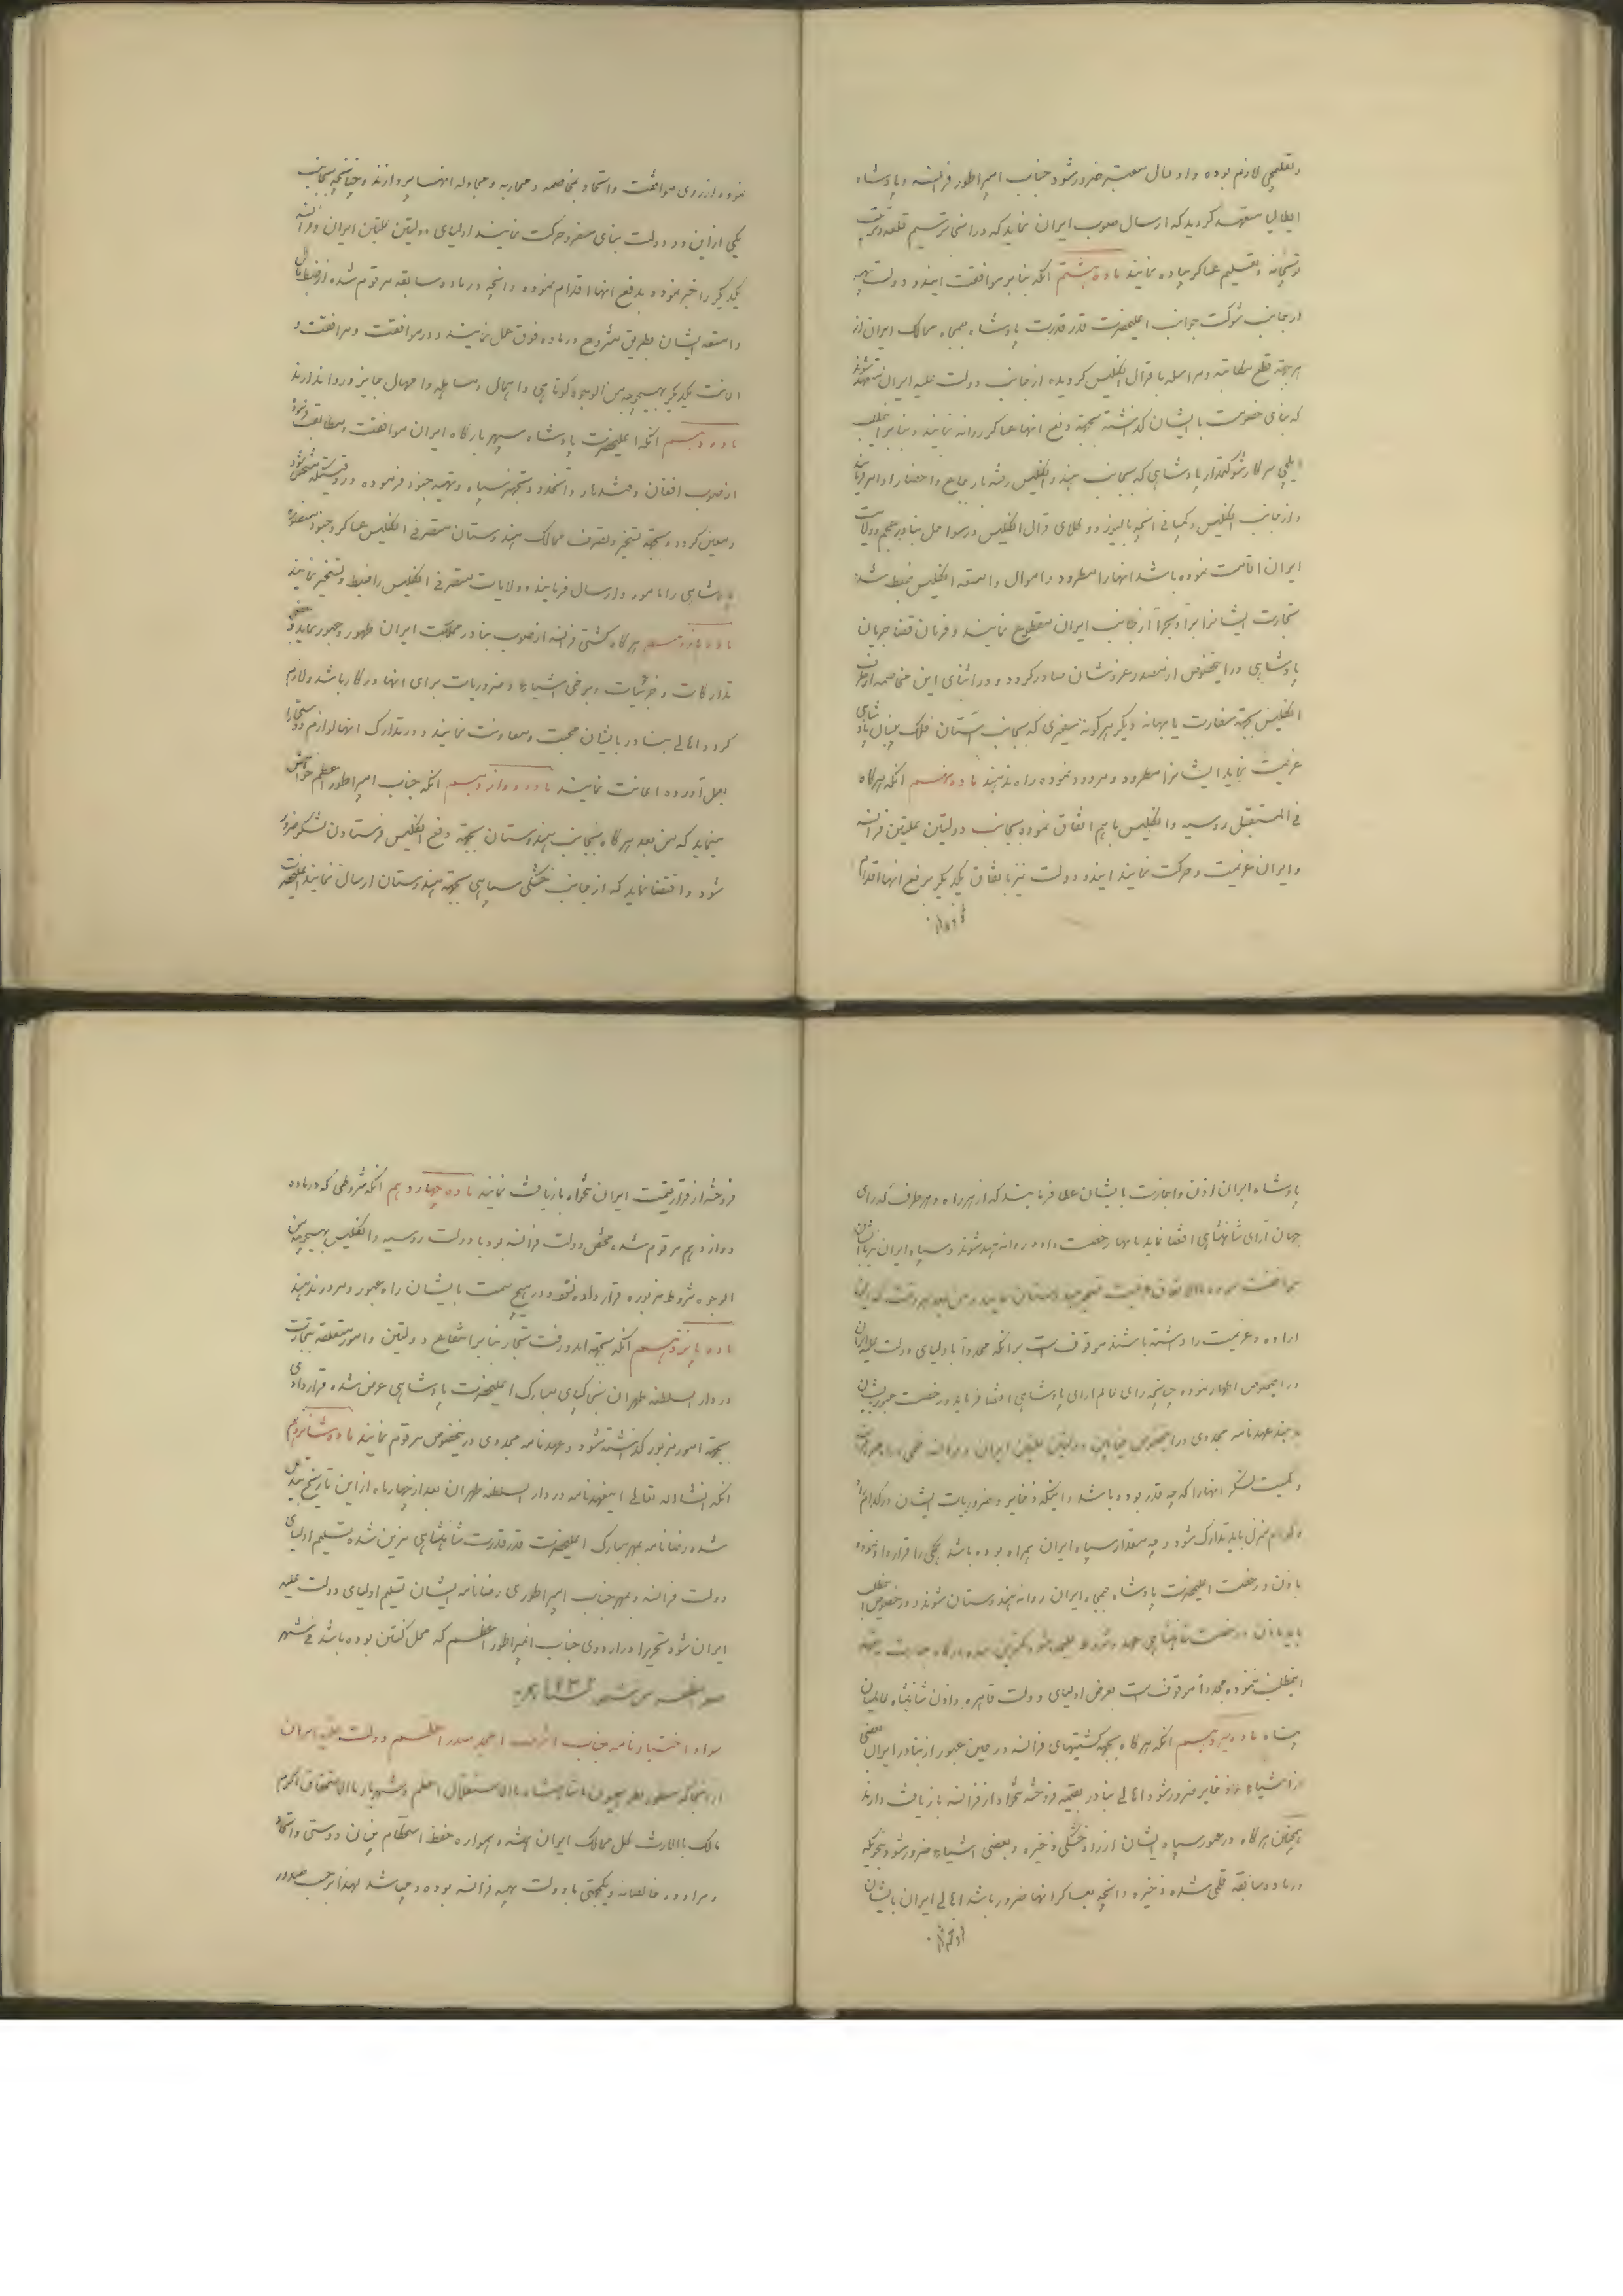 و تعلیمچی لازم بوده و ارسال معتبر ضرور شود جناب امپراطور فرانسه و پادشاه
ایطالیا متعهد گردید که ارسال صوب ایران نماید که در اسنی ترسیم قلعه و ترتیب
توپخانه و تعلیم عساکر پیاده نمایند ماده هشتم آنکه بنابر موافقت ایندو دولت بهیه
از جانب شوکت جوانب اعلیحضرت قدر قدرت پادشاه جمجاه ممالک ایران از
هر جهة قطع مکاتبه و مراسله با قرال انگلیس گردیده از جانب دولت علیه ایران متعهد شوند
که بنای خصومت با ایشان گذاشته بجهة دفع انها عساکر روانه نمایند و بنابر مطلب
ایلچی سرکار شوکتمدار پادشاهی که بجانب هند و انگلیس رفته بارجاع و احضار او امر فرمایند
و از جانب انگلیس و کمپانی آنچه بالیوز و وکلای قرال انگلیس در سواحل بنادر عجم و ولایت
ایران اقامت نموده باشد انها را مطرود و اموال و امتعه انگلیس ضبط شد
تجارت ایشانرا برا و بحرا از جانب ایران مقطوع نمایند و فرمان قضا جریان
پادشاهی در اینخصوص از مصدر عز و شان صادر گردد و در اثنای این مخاصمه از طرف
انگلیس بجهة سفارت یا بهانه دیگر هر گونه سفیری که بجانب آستان فلک بنیان پادشاهی
عزیمت نماید ایشانرا مطرود و مردود نموده راه ندهند ماده نهم آنکه هرگاه
فی المستقبل روسیه و انگلیس با هم اتفاق نموده بجانب دولتین علیتین فرانسه
و ایران عزیمت و حرکت نمایند ایندو دولت نیز باتفاق یکدیگر بدفع انها اقدام
نموده از روی موافقت و اتحاد بمخاصمه و محاربه و مجادله انها پردازند و چنانچه بجانب
یکی از این دو دولت بنای سفر و حرکت نمایند اولیای دولتین علیتین ایران و فرانسه
یکدیگر را خبر نموده بدفع انها اقدام نموده و آنچه در ماده سابقه مرقوم شده از ضبط مال
و امتعه ایشان بطریق مشروح در ماده فوق عمل نمایند و در موافقت و مرافقت و
اعانت یکدیگر بهیچوجه من الوجوه کوتاهی و اهمال و مساهله و امهال جایز و روا ندارند
ماده دهم آنکه اعلیحضرت پادشاه سپهر بارگاه ایران موافقت و مطابقت فرمود
از صوب افغان و قندهار و آنحدود و تجهیز سپاه و تهیه جنود فرموده در وقتیکه مشخص شود
و معین گردد و بجهة تسخیر و تصرف ممالک هندوستان متصرفی انگلیس عساکر و جنود منصوره
پادشاهی را مامور و ارسال فرمایند و ولایات متصرفی انگلیس را ضبط و تسخیر نمایند
ماده یازدهم هرگاه کشتی فرانسه از صوب بنادر مملکت ایران ظهور و عبور نماید و بعضی
تدارکات و جزئیات و برخی اشیاء و ضروریات برای انها در کار باشد و لازم
گردد اهالی بنادر بایشان محبت و معاونت نمایند و در تدارک انها لوازم دوستی را
بعمل آورده اعانت نمایند ماده دوازدهم آنکه جناب امپراطور اعظم خواهش
مینماید که من بعد هرگاه بجانب هندوستان بجهة دفع انگلیس فرستادن لشکر ضرور
شود و اقتضا نماید که از جانب خشکی سپاهی بجهة هندوستان ارسال نمایند اعلیحضرت
پادشاه ایران اذن و اجازت بایشان عطا فرمایند که از هر راه و هر طرف که رای
جهان آرای شاهنشاهی اقتضا نماید بانها رخصت داده روانه هند شوند و سپاه ایران نیز با ایشان
اراده و عزیمت را داشته باشند موقوف است بر آنکه مجددا با ولیای دولت علیه ایران
در اینخصوص اظهار نموده چنانچه رای عالم ارای پادشاهی اقتضا فرماید و رخصت عبور بایشان
دهند عهدنامه مجددی در اینخصوص میانه دولتین علیتین ایران و فرانسه
و کمیت لشکر انها را که چه قدر بوده باشد و اینکه ذخایر و ضروریات ایشان در کدام راه
و کدام منزل باید تدارک شود و چه مقدار سپاه ایران همراه بوده باشد یکی را قرارداد نموده
باذن و رخصت اعلیحضرت پادشاه جمجاه ایران روانه هندوستان شوند و در خصوص مطلب
اینمطلب ننموده مجددا موقوف است بعرض اولیای دولت قاهره و اذن شاهنشاه عالمیان
پناه ماده سیزدهم آنکه هرگاه بجهة کشتیهای فرانسه در حین عبور از بنادر ایران بعضی
از اشیاء و ذخایر ضرور شود اهالی بنادر بقیمة فروخته تنخواه از فرانسه بازیافت دارند
همچنین هرگاه در عبور سپاه ایشان از راه خشکی ذخیره و بعضی اشیاء ضرور شود بنحویکه
در ماده سابقه قلمی شده ذخیره و آنچه بعساکر انها ضرور باشد اهالی ایران بایشان
فروخته از قرار قیمت ایران تنخواه بازیافت نمایند ماده چهاردهم آنکه شروطی که در ماده
دوازدهم مرقوم شده مختص دولت فرانسه بود با دولت روسیه و انگلیس بهیچوجه من
الوجوه شروط مزبوره قرار داده نشود و در هیچ سمت بایشان راه عبور و مرور ندهند
ماده پانزدهم آنکه بجهة امد و رفت تجار بنابر انتفاع دولتین و امور متعلقه بتجارت
در دار السلطنه طهران بخاکپای مبارک اعلیحضرت پادشاهی عرض شده قراردادی
بجهة امور مزبور گذاشته شود و عهدنامه مجددی در اینخصوص مرقوم نمایند ماده شانزدهم
آنکه انشاء الله تعالی اینعهدنامه در دار السلطنه طهران بعد از چهار ماه از این تاریخ تبدیل
شده رضانامه بمهر مبارک اعلیحضرت قدر قدرت شاهنشاهی مزین شده تسلیم اولیای
دولت فرانسه و بمهر جناب امپراطوری رضانامه ایشان تسلیم اولیای دولت علیه
ایران شود تحریرا در اردوی جناب امپراطور اعظم که محل کنتین بوده باشد فی شهر
سواد اختیار نامه جناب اشرف امجد صدر اعظم دولت علیه ایران
مالک بالارث کل ممالک ایران همیشه و همواره حفظ استحکام بنیان دوستی و اتحاد
و مراوده خالصانه و یکجهتی با دولت بهیه فرانسه بوده و میباشد لهذا بر حسب صدور